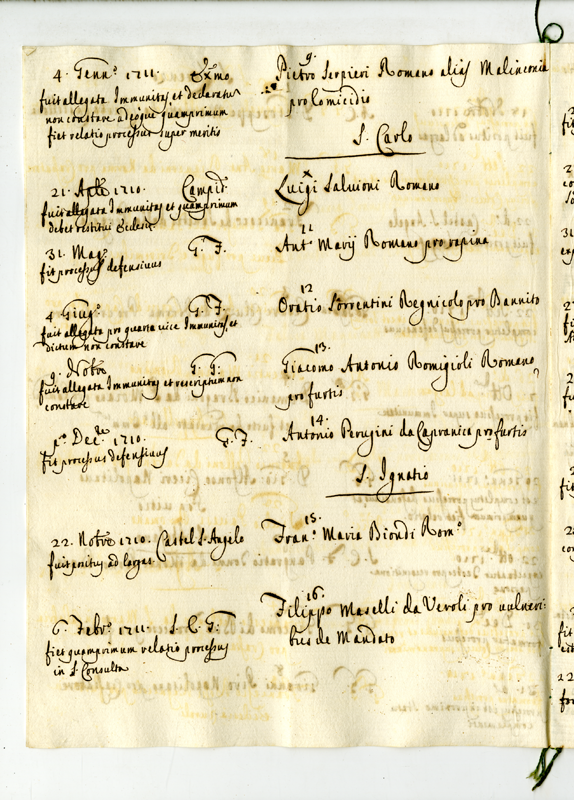 9.
4. Genn.º 1711. Ecc.mo Pietro Serpieri Romano alias Malinconia
fuit allegata Immunitas, et declaratum pro homicidio
non constare adeoque quamprimum
fiet relatio processus super meritis
S. Carlo
X
21. Aple 1710. Campid. Luigi Salvioni Romano
fuit allegata Immunitas et quamprimum
debet restitui Ecclesiæ
11
31. Mag. G. F. Ant.º Marij Romano pro rapina
fit processus defensivus
12
4 Giug.º G. F. Oratio Sorrentini Regnicolo pro Bannito
fuit allegata pro quarta vice Immunitas, et
dictum non constare
13.
9. Nbre G. G. Giacomo Antonio Romigioli Romano
fuit allegata Immunitas et rescriptum non pro furtis
constare
14.
p.º Dec.bre 1710. G. F. Antonio Perugini da Capranica pro furtis
fit processus defensivus
S. Ignatio
15.
22. Nbre 1710. Castel S. Angelo Fran.º Maria Biondi Rom.º
fuit positus ad largas
16.
6. Febr.º 1711. S. C. G. Filippo Maselli da Veroli pro vulneri:
fiet quamprimum relatio processus bus de Mandato
in S. Consulta